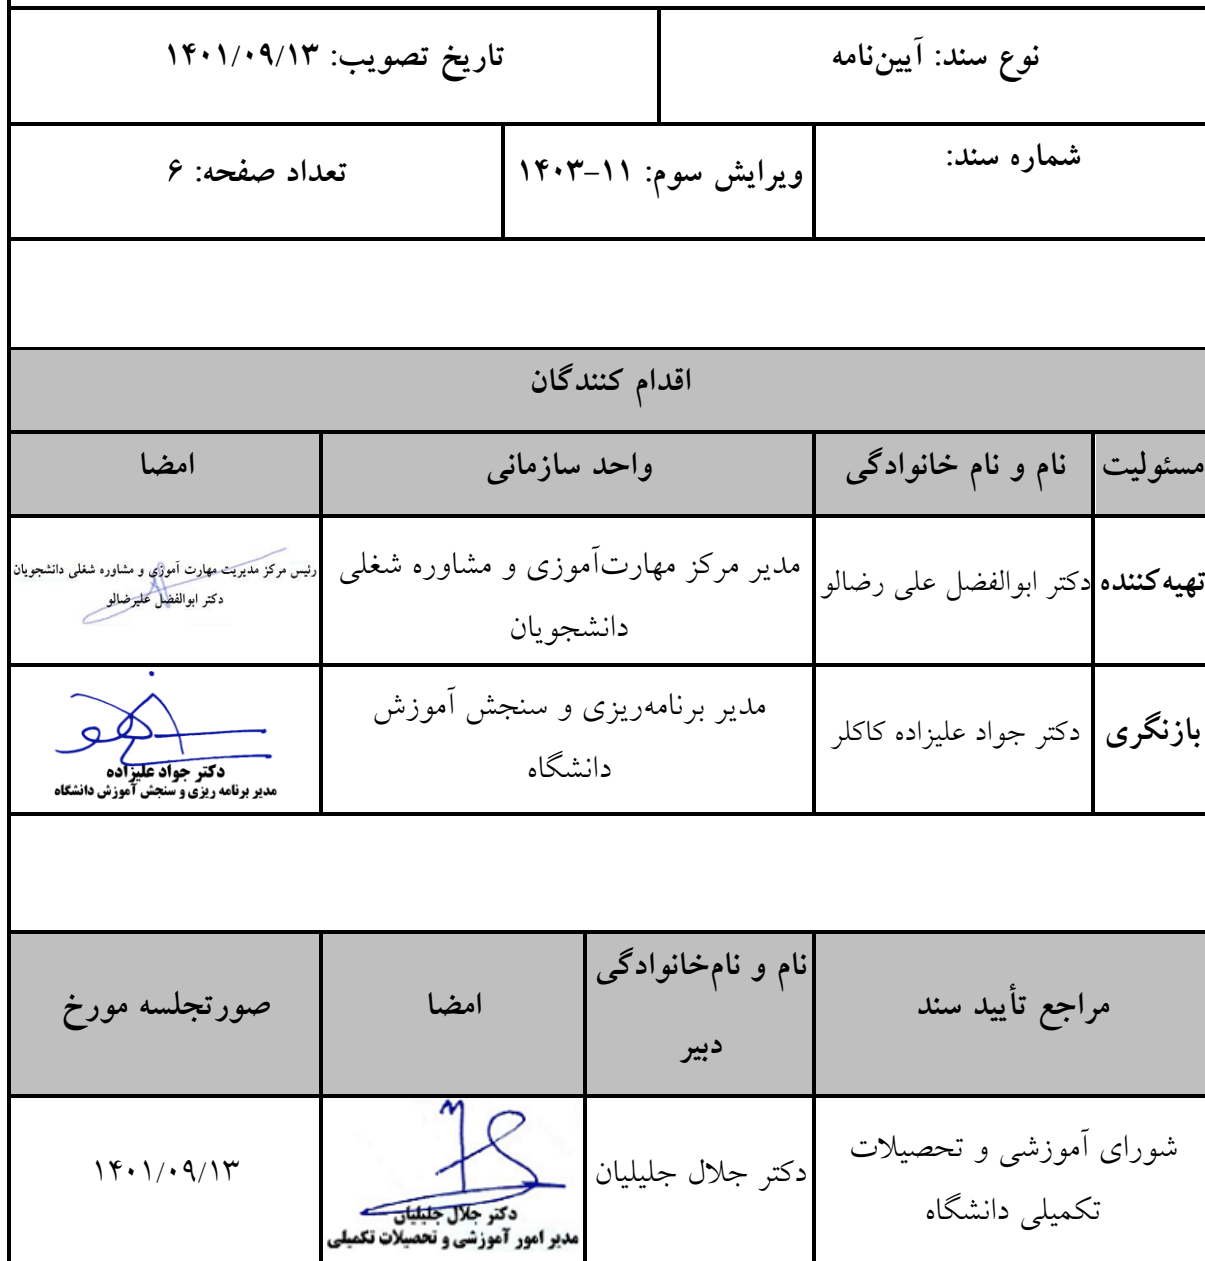 نوع سند: آیین‌نامه
تاریخ تصویب: ۱۴۰۱/۰۹/۱۳
شماره سند:
ویرایش سوم: ۱۱-۱۴۰۳
تعداد صفحه: ۶
اقدام کنندگان
مسئولیت
نام و نام خانوادگی
واحد سازمانی
امضا
تهیه‌کننده
دکتر ابوالفضل علی رضالو
مدیر مرکز مهارت‌آموزی و مشاوره شغلی
دانشجویان
رئیس مرکز مدیریت مهارت آموزی و مشاوره شغلی دانشجویان
دکتر ابوالفضل علیرضالو
بازنگری
دکتر جواد علیزاده کاکلر
مدیر برنامه‌ریزی و سنجش آموزش
دانشگاه
دکتر جواد علیزاده
مدیر برنامه ریزی و سنجش آموزش دانشگاه
مراجع تأیید سند
نام و نام‌خانوادگی
دبیر
امضا
صورتجلسه مورخ
شورای آموزشی و تحصیلات
تکمیلی دانشگاه
دکتر جلال جلیلیان
دکتر جلال جلیلیان
مدیر امور آموزشی و تحصیلات تکمیلی
۱۴۰۱/۰۹/۱۳